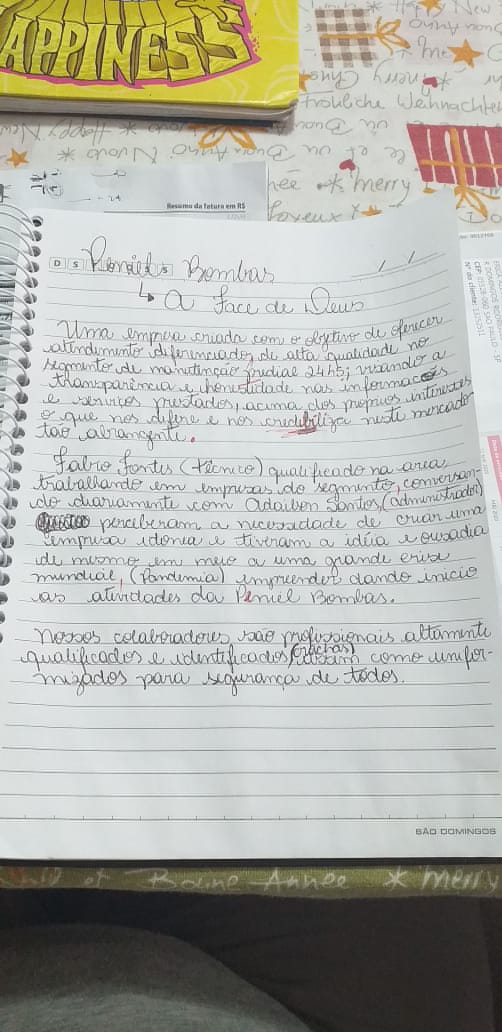 APPINESS
Resumo da fatura em R$
née * merry
Joyeux
D S
Peniel Bombas
↳ A Face de Deus
Uma empresa criada com o objetivo de oferecer
atendimento diferenciado, de alta qualidade no
segmento de manutinção predial 24hs; visando a
transparência e honestidade nas informações
e serviços prestados, acima dos próprios interesses
o que nos difere e nos credibiliza neste mercado
tão abrangente.
Fabio Fontes (técnico) qualificado na area
trabalhando em empresas do segmento, conversan-
do diariamente com Adailson Santos, (administrador)
perceberam a necessidade de criar uma
empresa idonia e tiveram a idéia e ousadia
de mesmo em meio a uma grande crise
mundial, (Pandemia) empreender dando inicio
as atividades da Peniel Bombas.
Nossos colaboradores são profissionais altamente
qualificados e identificados, (crachás) assim como unifor-
mizados para segurança de todos.
SÃO DOMINGOS
et Bonne Année * merry